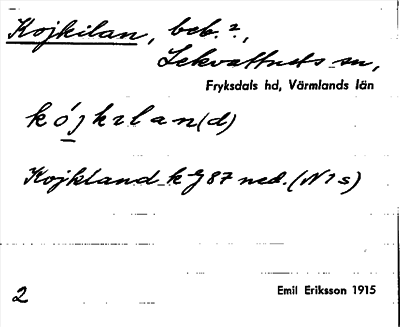 Kojkilan, beb. ?,
Lekvattnets sn,
Fryksdals hd, Värmlands län
kójkılan(d)
Kojkland kJ 87 ned. (N 1 s)
2
Emil Eriksson 1915